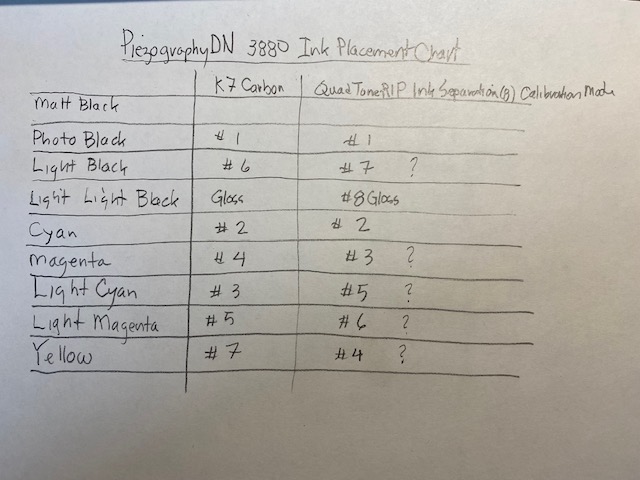 PiezographyDN 3880 Ink Placement Chart
K7 Carbon QuadToneRIP Ink Separation(8) Calibration Mode
Matt Black
Photo Black #1 #1
Light Black #6 #7 ?
Light Light Black Gloss #8 Gloss
Cyan #2 #2
Magenta #4 #3 ?
Light Cyan #3 #5 ?
Light Magenta #5 #6 ?
Yellow #7 #4 ?